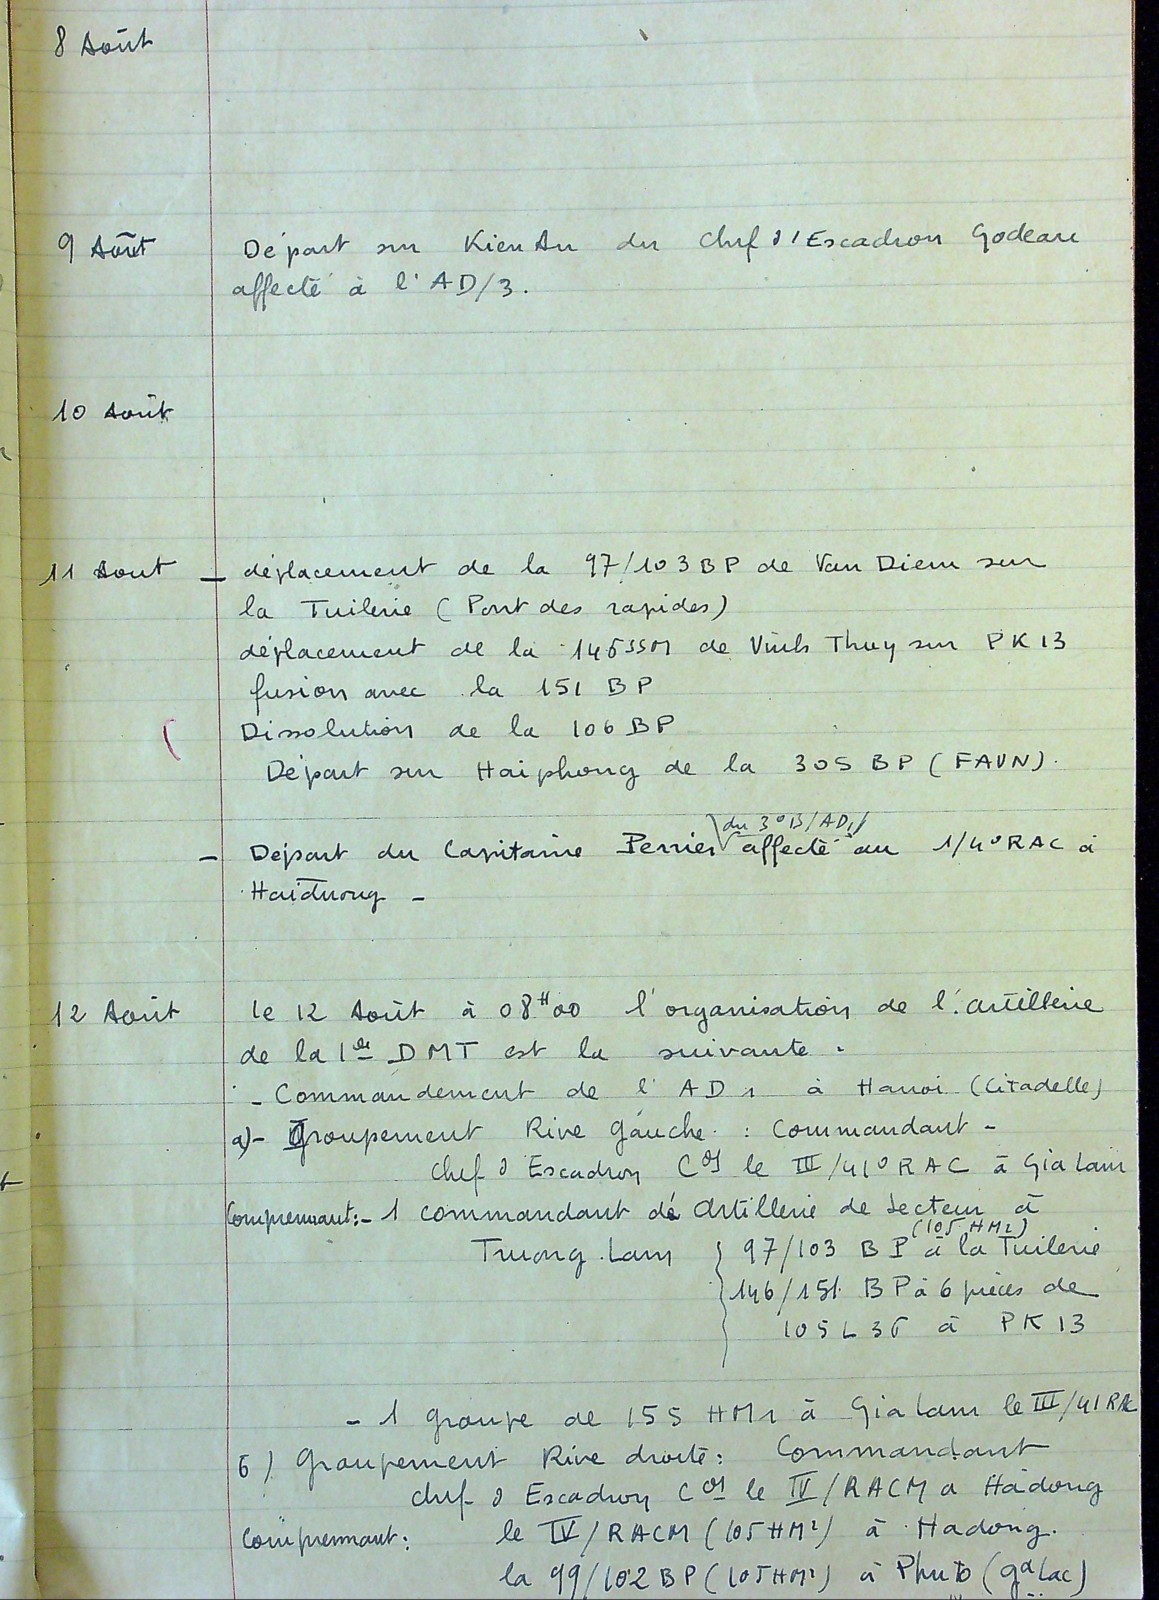 8 Août
9 Août Départ sur Kien An du Chef d'Escadron Godeau
affecté à l'AD/3.
10 Août
11 Aout - déplacement de la 97/103 BP de Van Diem sur
la Tuilerie (Pont des rapides)
déplacement de la 146 SSM de Vinh Thuy sur PK 13
fusion avec la 151 BP
Dissolution de la 106 BP
Départ sur Haiphong de la 305 BP (FAVN).
du 3°B/AD1
- Départ du Capitaine Perrier affecté au 1/4° RAC à
Haiduong -
12 Août le 12 Août à 08H00 l'organisation de l'artillerie
de la 1re DMT est la suivante.
- Commandement de l'AD1 à Hanoi (Citadelle)
a)- Groupement Rive Gauche : Commandant -
Chef d'Escadron Cdt le III/41° RAC à Gia Lam
Comprennant :- 1 commandant de Artillerie de Secteur à
(105 HM2)
Truong Lam { 97/103 BP à la Tuilerie
146/151 BP à 6 pièces de
105 L 36 à PK 13
- 1 groupe de 155 HM1 à Gia Lam le III/41 RAC
b) Groupement Rive droite : Commandant
chef d'Escadron Cdt le IV/RACM a Hadong
Comprennant : le IV/RACM (105 HM2) à Hadong.
la 99/102 BP (105 HM2) à Phuto (gd lac)